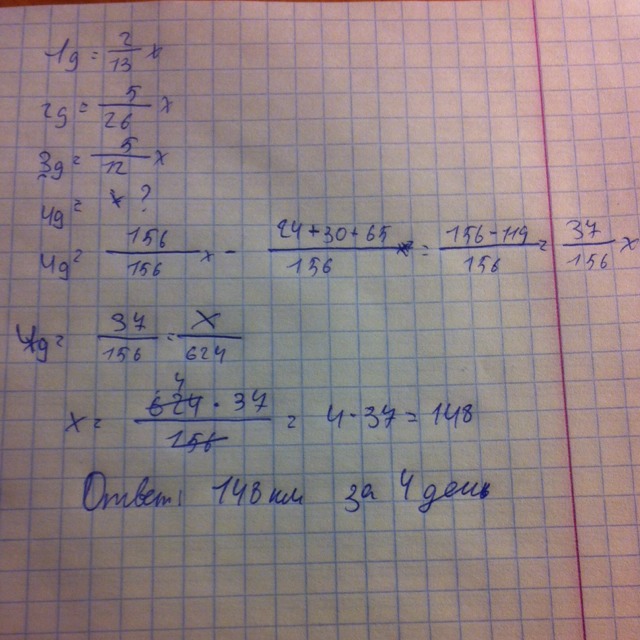 1д = 2/13 x
2д = 5/26 x
3д = 5/12 x
4д = x ?
4д = 156/156 x - 24+30+65/156 x = 156-119/156 = 37/156 x
4д = 37/156 = x/624
x = 624 4 · 37/156 = 4·37 = 148
Ответ: 148 км за 4 день